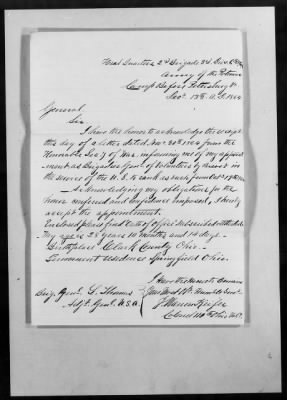 Head Quarters 2d Brigade 3d Div. 6th
Army of the Potomac
Camp Before Petersburg Va.
Dec. 13th A.D. 1864
General,
Sir
I have the honor to acknowledge the receipt
this day of a letter dated, Nov. 30th 1864 from the
Honorable Sec'y of War, informing me of my appoint-
ment as Brigadier Gen'l of Volunteers by brevet in
the service of the U.S. to rank as such from Oct. 19th 1864
Acknowledging my obligations for the
honor conferred and confidence imposed, I hereby
accept the appointment.
Enclosed please find Oath of Office subscribed
My age is 28 years 10 months and 14 days.
Birthplace Clark County Ohio.
Permanent residence Springfield Ohio.
I Have the Honor to
Your Most Ob't Humble Serv't
Brig. Genl. L. Thomas
J Warren Keifer
Adjt. Genl. U.S.A.
Colonel 110th Ohio Vols.